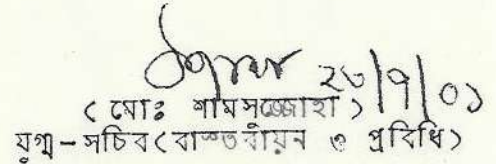 ২৩|৭|০১
( মোঃ শামসুজ্জোহা )
যুগ্ম-সচিব(বাস্তবায়ন ও প্রবিধি)